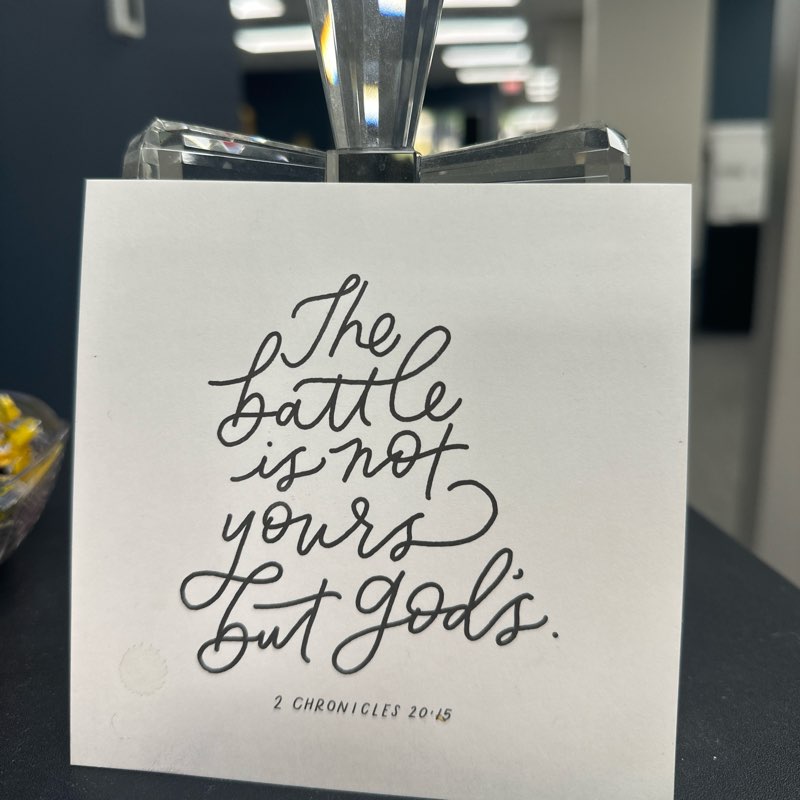 The
battle
is not
yours
but god's.
2 CHRONICLES 20:15